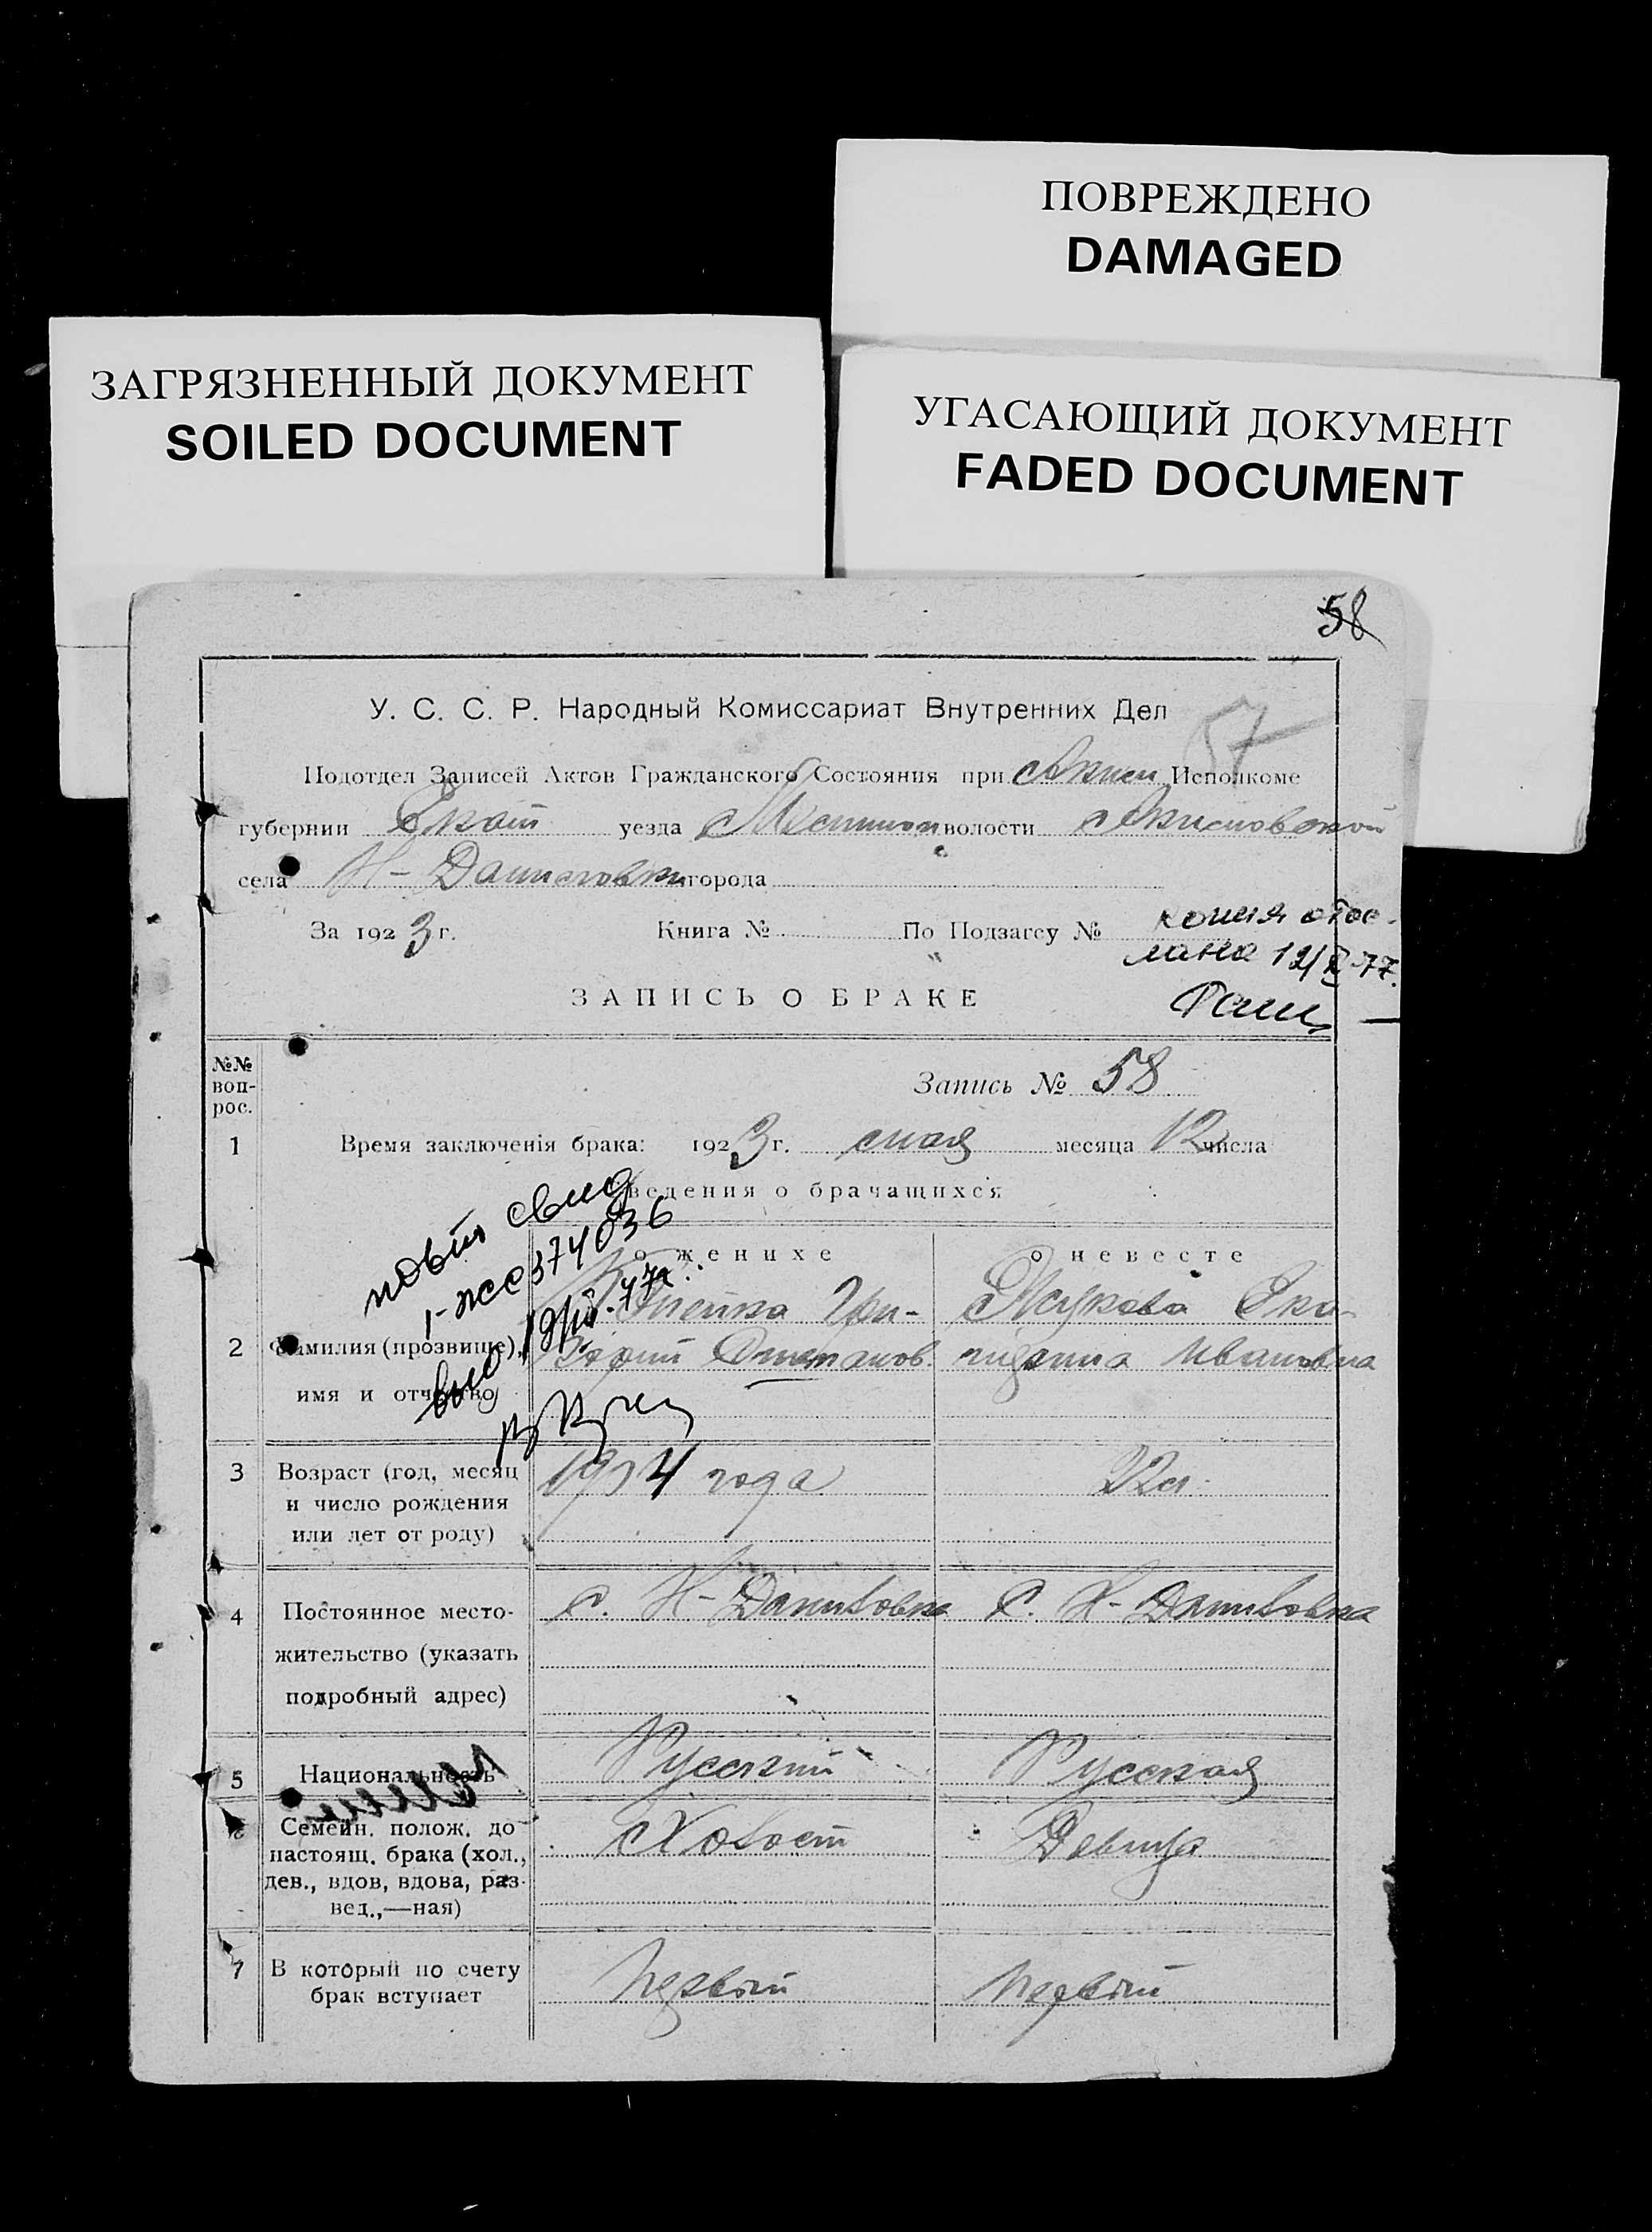 ПОВРЕЖДЕНО
DAMAGED
ЗАГРЯЗНЕННЫЙ ДОКУМЕНТ
SOILED DOCUMENT
УГАСАЮЩИЙ ДОКУМЕНТ
FADED DOCUMENT
58
У. С. С. Р. Народный Комиссариат Внутренних Дел
57
Подотдел Записей Актов Гражданского Состояния при Исполкоме
губернии Екат уезда волости
села Н-Даниловки города
За 1923 г. Книга № По Подзагсу №
копия отос-
лана
ЗАПИСЬ О БРАКЕ
№№ воп-рос.
Запись № 58
1 Время заключенія брака: 1923 г. мая месяца 12 числа
ведения о брачащихся
повт свид
374036
о женихе о невесте
2 Фамилия (прозвище),
имя и отчество
Гри-
горий
Жукова Ека-
Ивановна
3 Возраст (год, месяц
и число рождения
или лет от роду)
1904 года
22 л.
4 Постоянное место-
жительство (указать
подробный адрес)
с. Н-Даниловка
с. Н-Даниловка
5 Национальность
Русский
Русская
6 Семейн. полож. до
настоящ. брака (хол.,
дев., вдов, вдова, раз-
вед.,—ная)
Холост
Девица
7 В который по счету
брак вступает
Первый
Первый